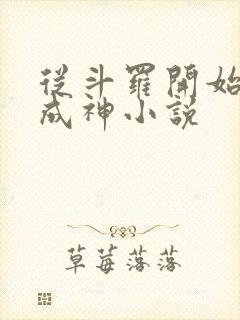 從斗羅開始
成神小說
草莓落落